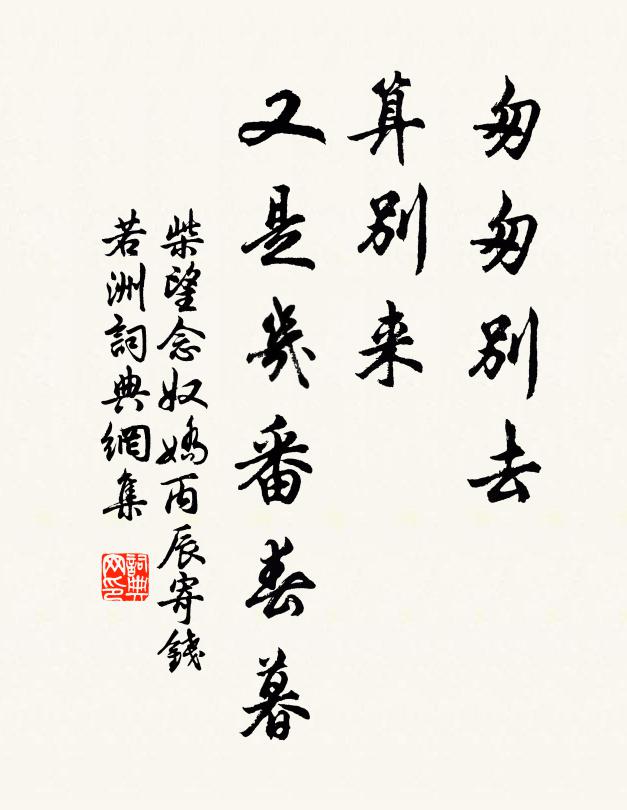 匆匆別去
算別来
又是幾番春暮
柴望念奴嬌丙辰寄錢
若洲詞典網集
詞典
网印